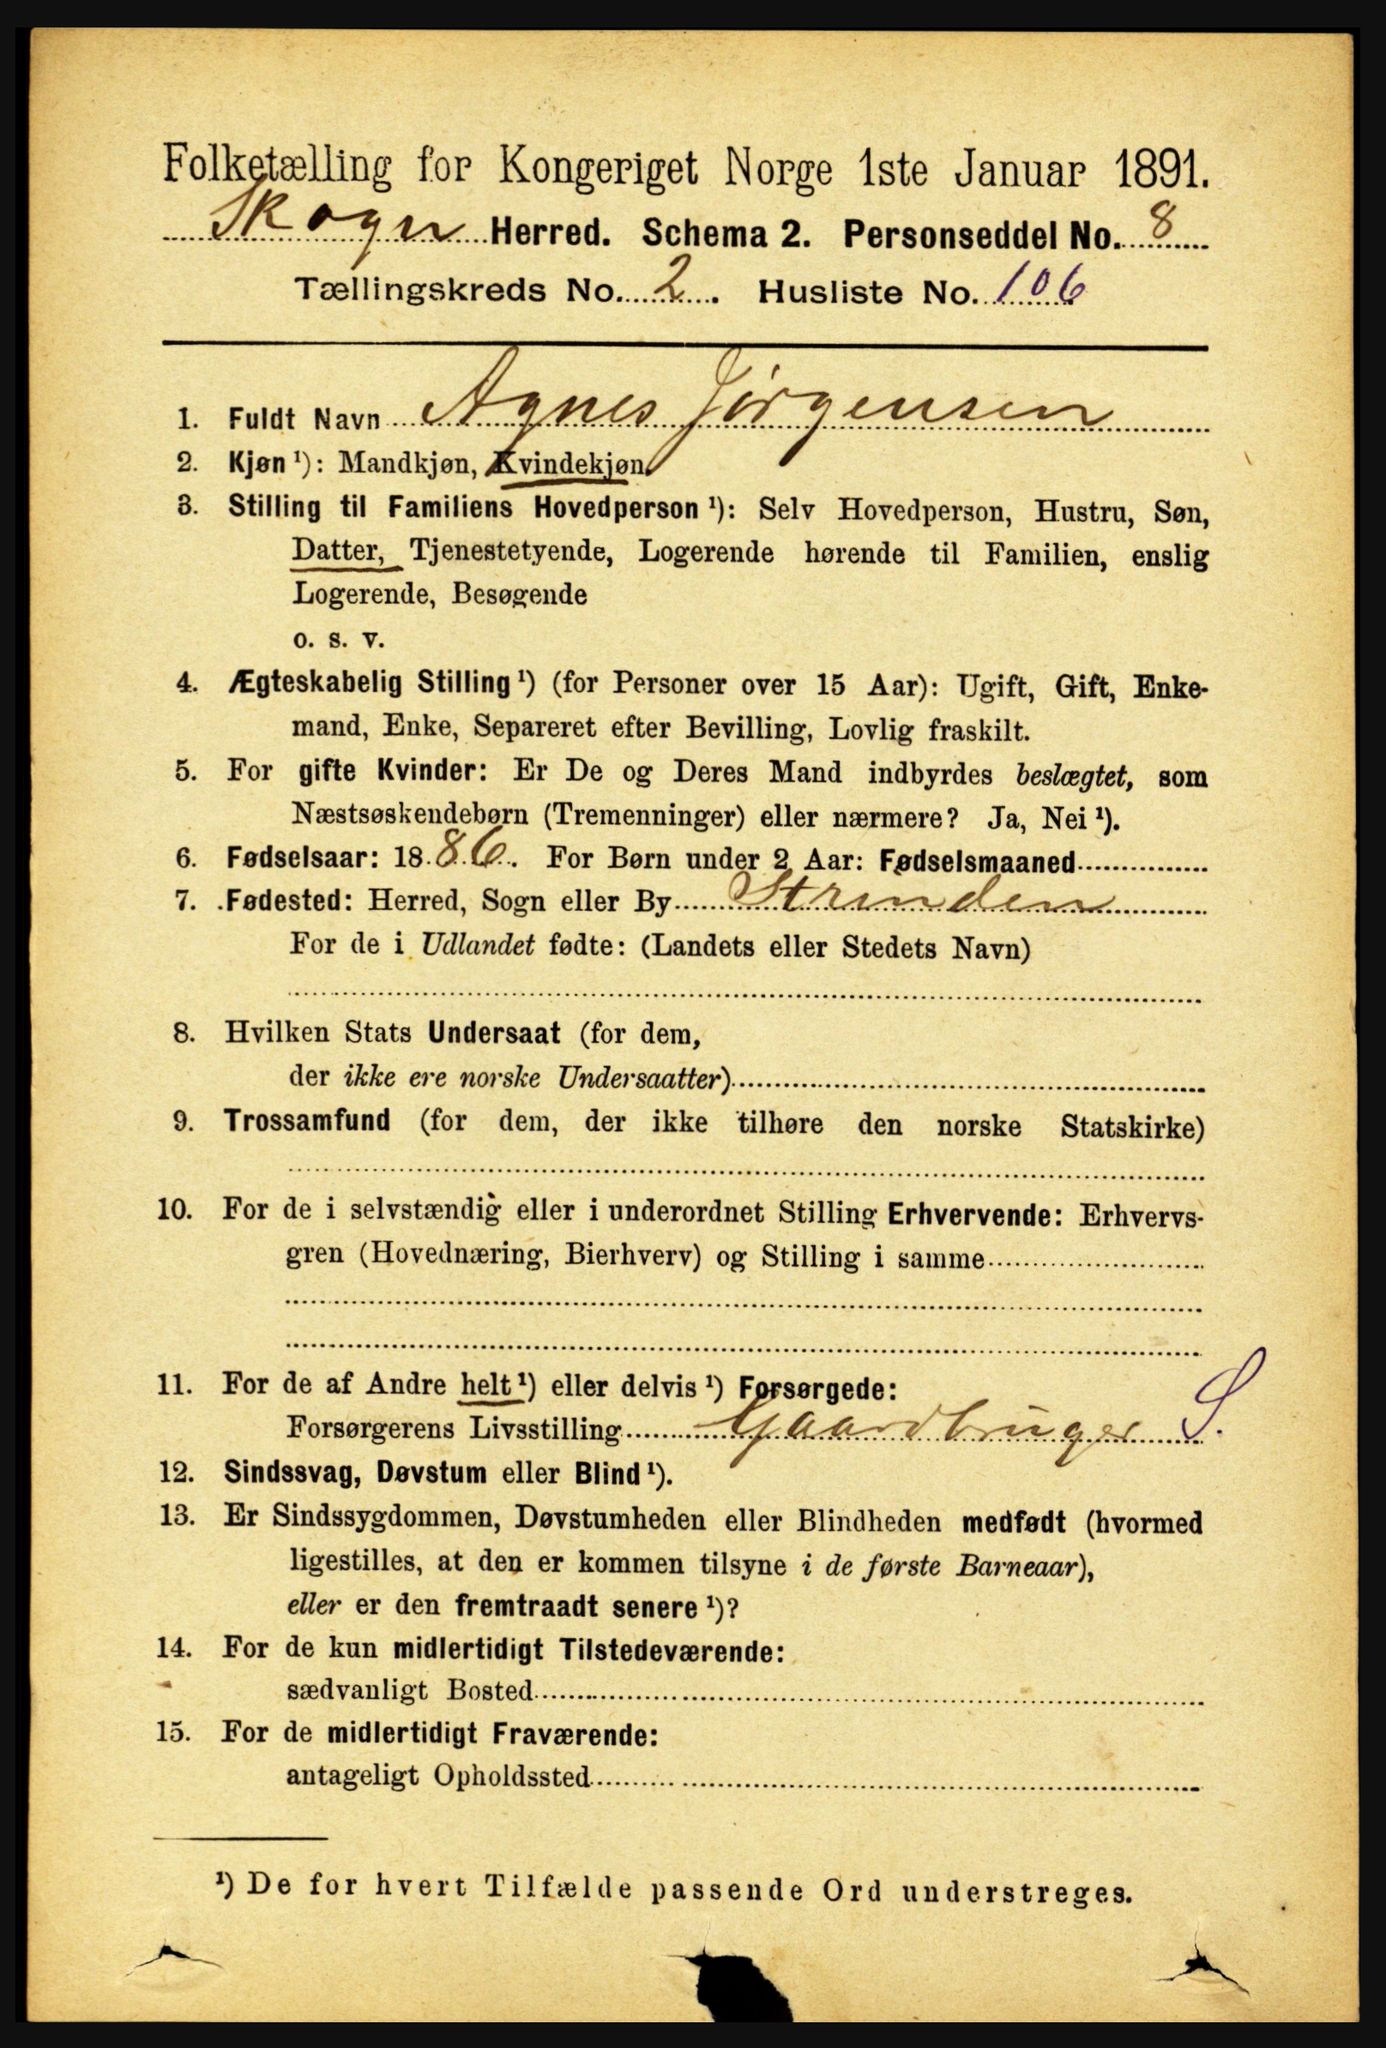 Folketælling for Kongeriget Norge 1ste Januar 1891.
Skogn Herred. Schema 2. Personseddel No. 8
Tællingskreds No. 2. Husliste No. 106
1. Fuldt Navn Agnes Jørgensen
2. Kjøn¹): Mandkjøn, Kvindekjøn.
3. Stilling til Familiens Hovedperson¹): Selv Hovedperson, Hustru, Søn,
Datter, Tjenestetyende, Logerende hørende til Familien, enslig
Logerende, Besøgende
o. s. v.
4. Ægteskabelig Stilling¹) (for Personer over 15 Aar): Ugift, Gift, Enke-
mand, Enke, Separeret efter Bevilling, Lovlig fraskilt.
5. For gifte Kvinder: Er De og Deres Mand indbyrdes beslægtet, som
Næstsøskendebørn (Tremenninger) eller nærmere? Ja, Nei¹).
6. Fødselsaar: 1886. For Børn under 2 Aar: Fødselsmaaned
7. Fødested: Herred, Sogn eller By Strinden
For de i Udlandet fødte: (Landets eller Stedets Navn)
8. Hvilken Stats Undersaat (for dem,
der ikke ere norske Undersaatter)
9. Trossamfund (for dem, der ikke tilhøre den norske Statskirke)
10. For de i selvstændig eller i underordnet Stilling Erhvervende: Erhvervs-
gren (Hovednæring, Bierhverv) og Stilling i samme
11. For de af Andre helt¹) eller delvis¹) Forsørgede:
Forsørgerens Livsstilling Gaardbruger S.
12. Sindssvag, Døvstum eller Blind¹).
13. Er Sindssygdommen, Døvstumheden eller Blindheden medfødt (hvormed
ligestilles, at den er kommen tilsyne i de første Barneaar),
eller er den fremtraadt senere¹)?
14. For de kun midlertidigt Tilstedeværende:
sædvanligt Bosted
15. For de midlertidigt Fraværende:
antageligt Opholdssted
¹) De for hvert Tilfælde passende Ord understreges.